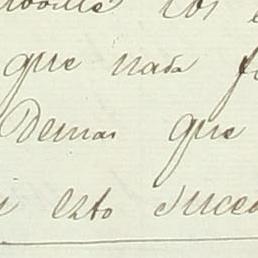 los
que nada
Demas que
esto suce